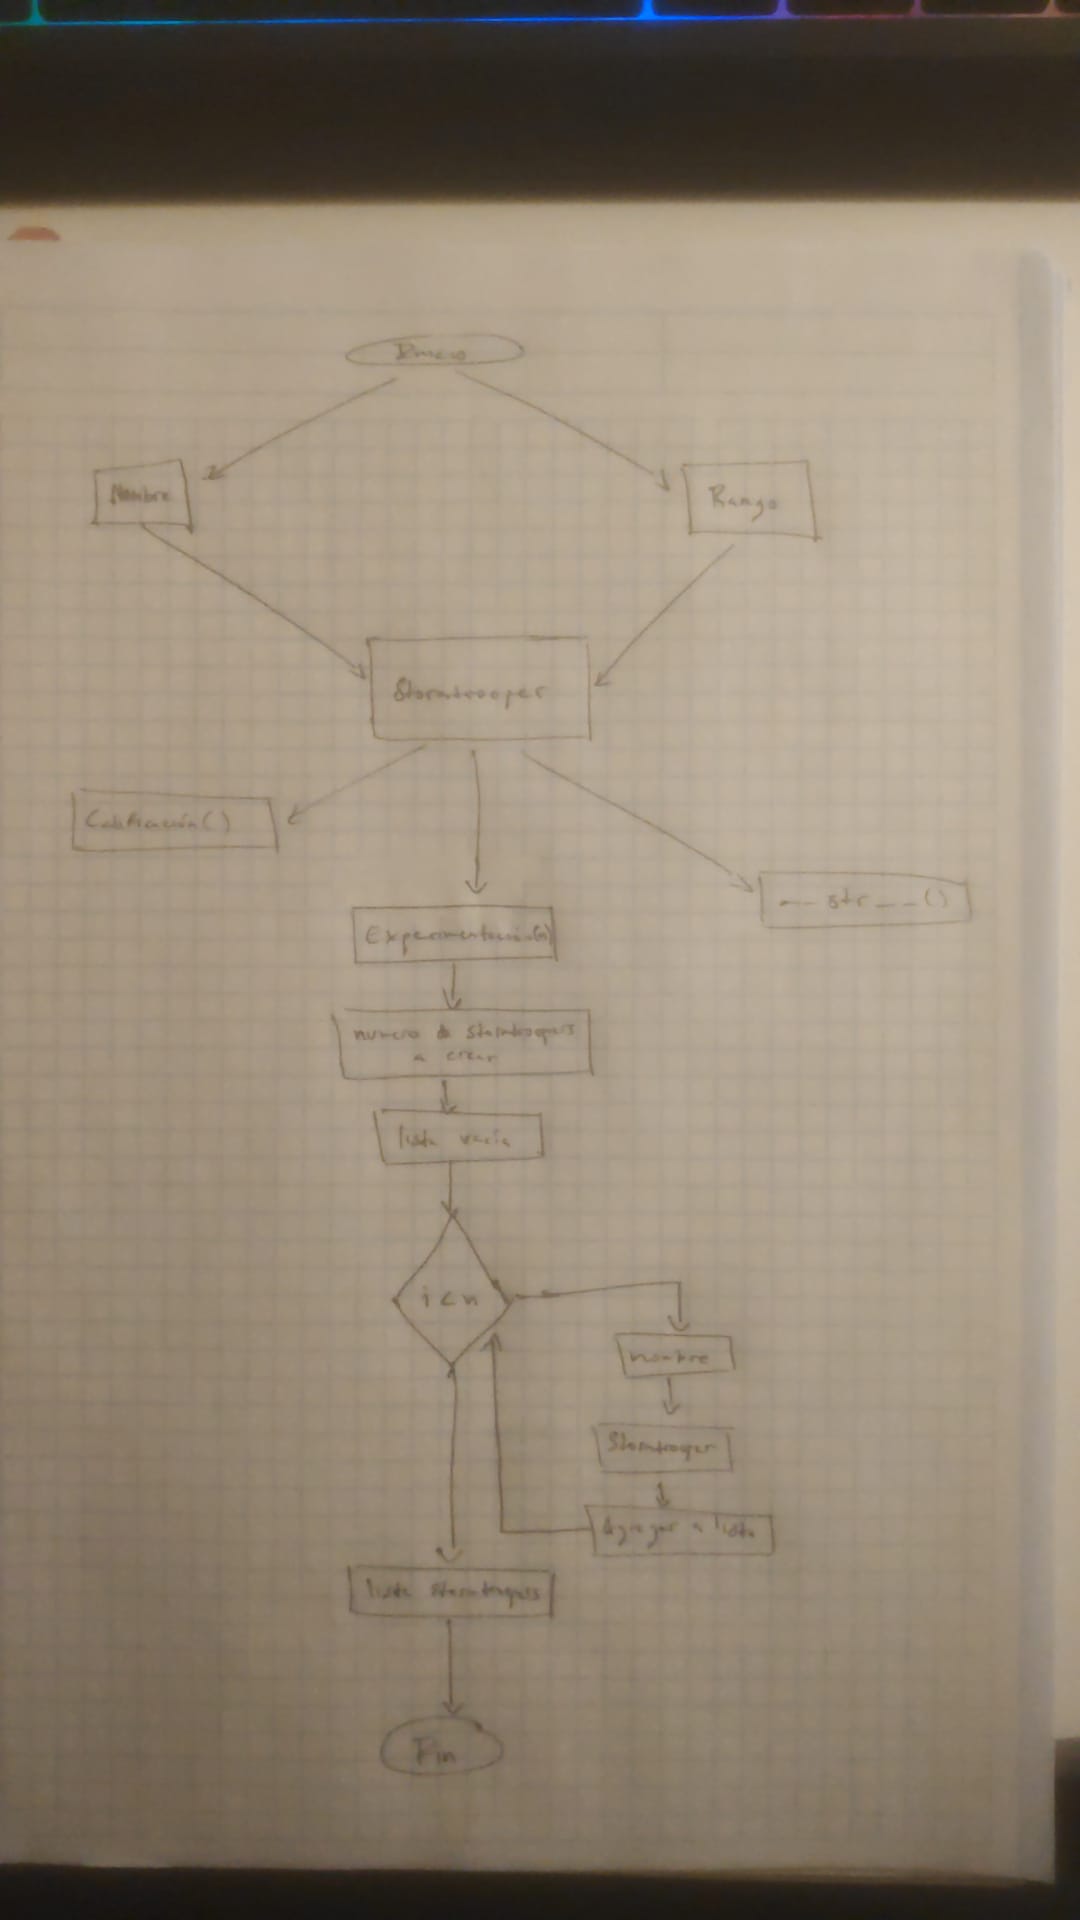 Inicio
Nombre
Rango
Stormtrooper
Calificación()
__str__()
Experimentación(n)
numero de stormtroopers
a crear
lista vacía
i < n
nombre
Stormtrooper
Agregar a lista
lista stormtroopers
Fin